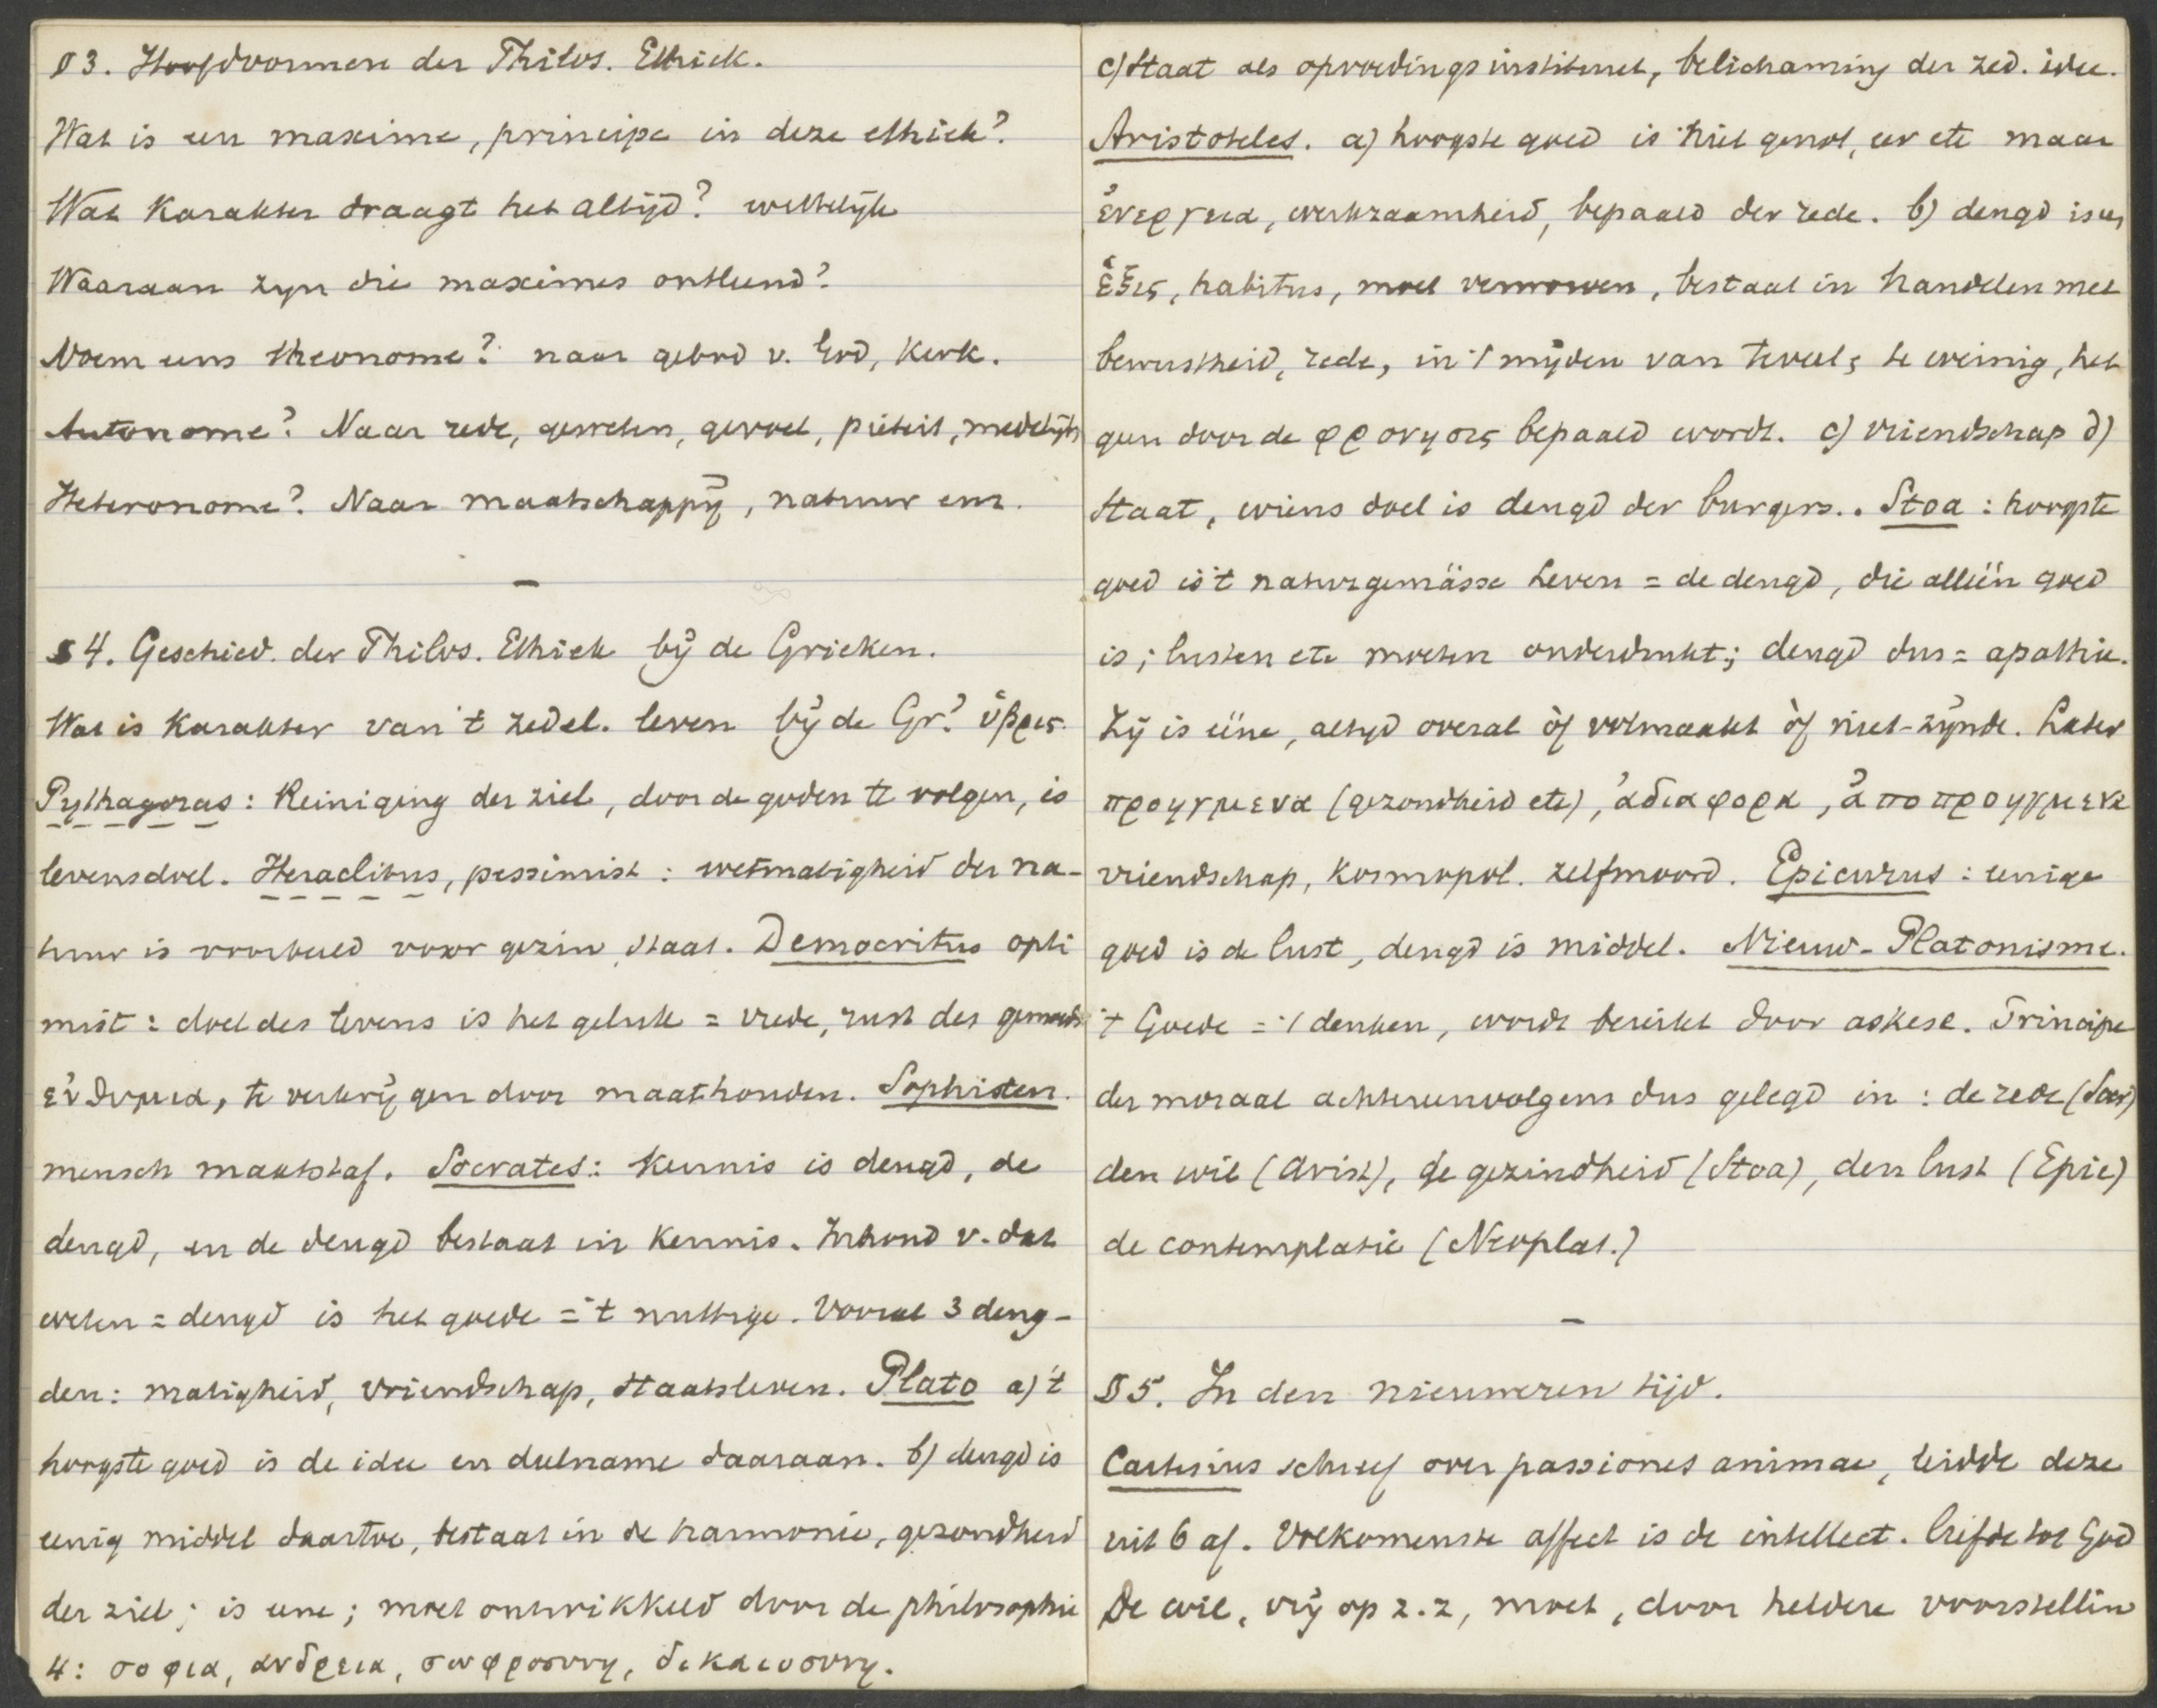 § 3. Hoofdvormen der Philos. Ethiek.
Wat is een maxime, principe in deze ethiek?
Wat karakter draagt het altijd? wettelijk
Waaraan zyn die maximes ontleend?
Noem eens theonome? naar gebod v. God, Kerk.
Autonome? Naar rede, geweten, gevoel, pieteit, medelijden
Heteronome? Naar maatschappij, natuur enz.
§ 4. Geschied. der Philos. Ethiek bij de Grieken.
Wat is karakter van 't zedel. leven bij de Gr? ὑβρις.
Pythagoras: Reiniging der ziel, door de goden te volgen, is
levensdoel. Heraclitus, pessimist: wetmatigheid der na-
tuur is voorbeeld voor gezin, staat. Democritus opti
mist: doel des levens is het geluk = vrede, rust des gemoeds
εὐθυμια, te verkrijgen door maathouden. Sophisten.
mensch maatstaf. Socrates: Kennis is deugd, de
deugd, en de deugd bestaat in kennis. Inhoud v. dat
weten = deugd is het goede = 't nuttige. Vooral 3 deug-
den: matigheid, vriendschap, staatsleven. Plato a) 't
hoogste goed is de idee en deelname daaraan. b) deugd is
eenig middel daartoe, bestaat in de harmonie, gezondheid
der ziel; is eene; moet ontwikkeld door de philosophie
4: σοφια, ανδρεια, σωφροσυνη, δικαιοσυνη.
c) Staat als opvoedingsinstituut, belichaming der zed. idee.
Aristoteles. a) hoogste goed is niet genot, eer etc maar
ἐνεργεια, werkzaamheid, bepaald der rede. b) deugd is een
ἑξις, habitus, moet verworven, bestaat in handelen met
bewustheid, rede, in 't mijden van teveel & te weinig, het
geen door de φρονησις bepaald wordt. c) vriendschap d)
Staat, wiens doel is deugd der burgers.. Stoa: hoogste
goed is 't naturgemässe Leven = de deugd, die alleen goed
is; lusten etc moeten onderdrukt; deugd dus = apathie.
Zij is eéne, altyd overal òf volmaakt òf niet-zijnde. Later
προηγμενα (gezondheid etc), ἀδιαφορα, ἀποπροηγμενα
vriendschap, Kosmopol. zelfmoord. Epicurus: eenige
goed is de lust, deugd is middel. Nieuw-Platonisme.
't Goede = 't denken, wordt bereikt door askese. Principe
der moraal achtereenvolgens dus gelegd in: de rede (Socr)
den wil (Arist), de gezindheid (Stoa), den lust (Epic)
de contemplatie (Neoplat.)
§ 5. In den nieuweren tijd.
Cartesius schreef over passiones animae, leidde deze
uit 6 af. Volkomenste affect is de intellect. liefde tot God
De wil, vrij op z. z, moet, door heldere voorstellin